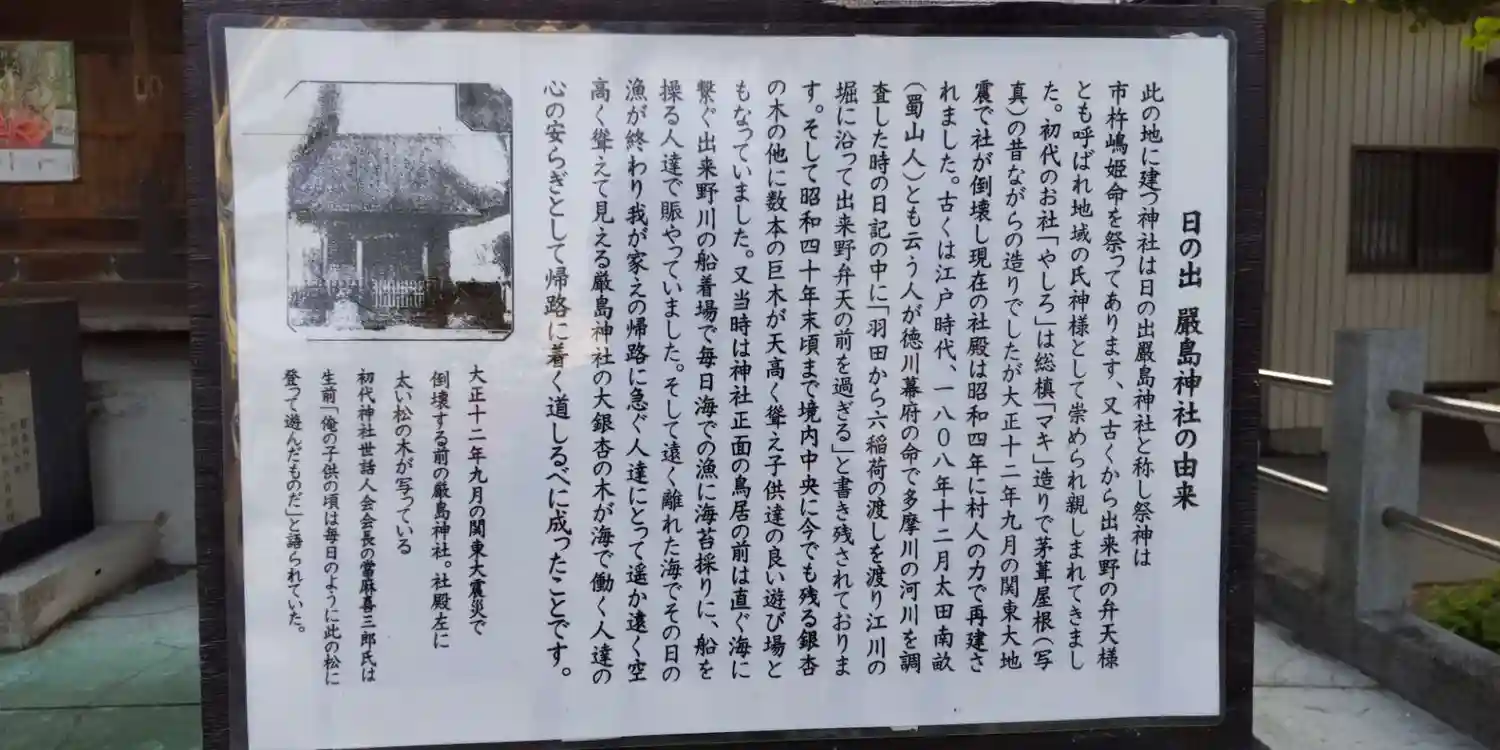 日の出 厳島神社の由来
此の地に建つ神社は日の出嚴島神社と称し祭神は
市杵嶋姫命を祭ってあります、又古くから出来野の弁天様
とも呼ばれ地域の氏神様として崇められ親しまれてきまし
た。初代のお社「やしろ」は総槙「マキ」造りで茅葺屋根(写
真)の昔ながらの造りでしたが大正十二年九月の関東大地
震で社が倒壊し現在の社殿は昭和四年に村人の力で再建さ
れました。古くは江戸時代、一八〇八年十二月太田南畝
(蜀山人)とも云う人が徳川幕府の命で多摩川の河川を調
査した時の日記の中に「羽田から六稲荷の渡しを渡り江川の
堀に沿って出来野弁天の前を過ぎる」と書き残されておりま
す。そして昭和四十年末頃まで境内中央に今でも残る銀杏
の木の他に数本の巨木が天高く聳え子供達の良い遊び場と
もなっていました。又当時は神社正面の鳥居の前は直ぐ海に
繋ぐ出来野川の船着場で毎日海での漁に海苔採りに、船を
操る人達で賑やっていました。そして遠く離れた海でその日の
漁が終わり我が家えの帰路に急ぐ人達にとって遥か遠く空
高く聳えて見える厳島神社の大銀杏の木が海で働く人達の
心の安らぎとして帰路に着く道しるべに成ったことです。
大正十二年九月の関東大震災で
倒壊する前の厳島神社。社殿左に
太い松の木が写っている
初代神社世話人会会長の當麻喜三郎氏は
生前「俺の子供の頃は毎日のように此の松に
登って遊んだものだ」と語られていた。